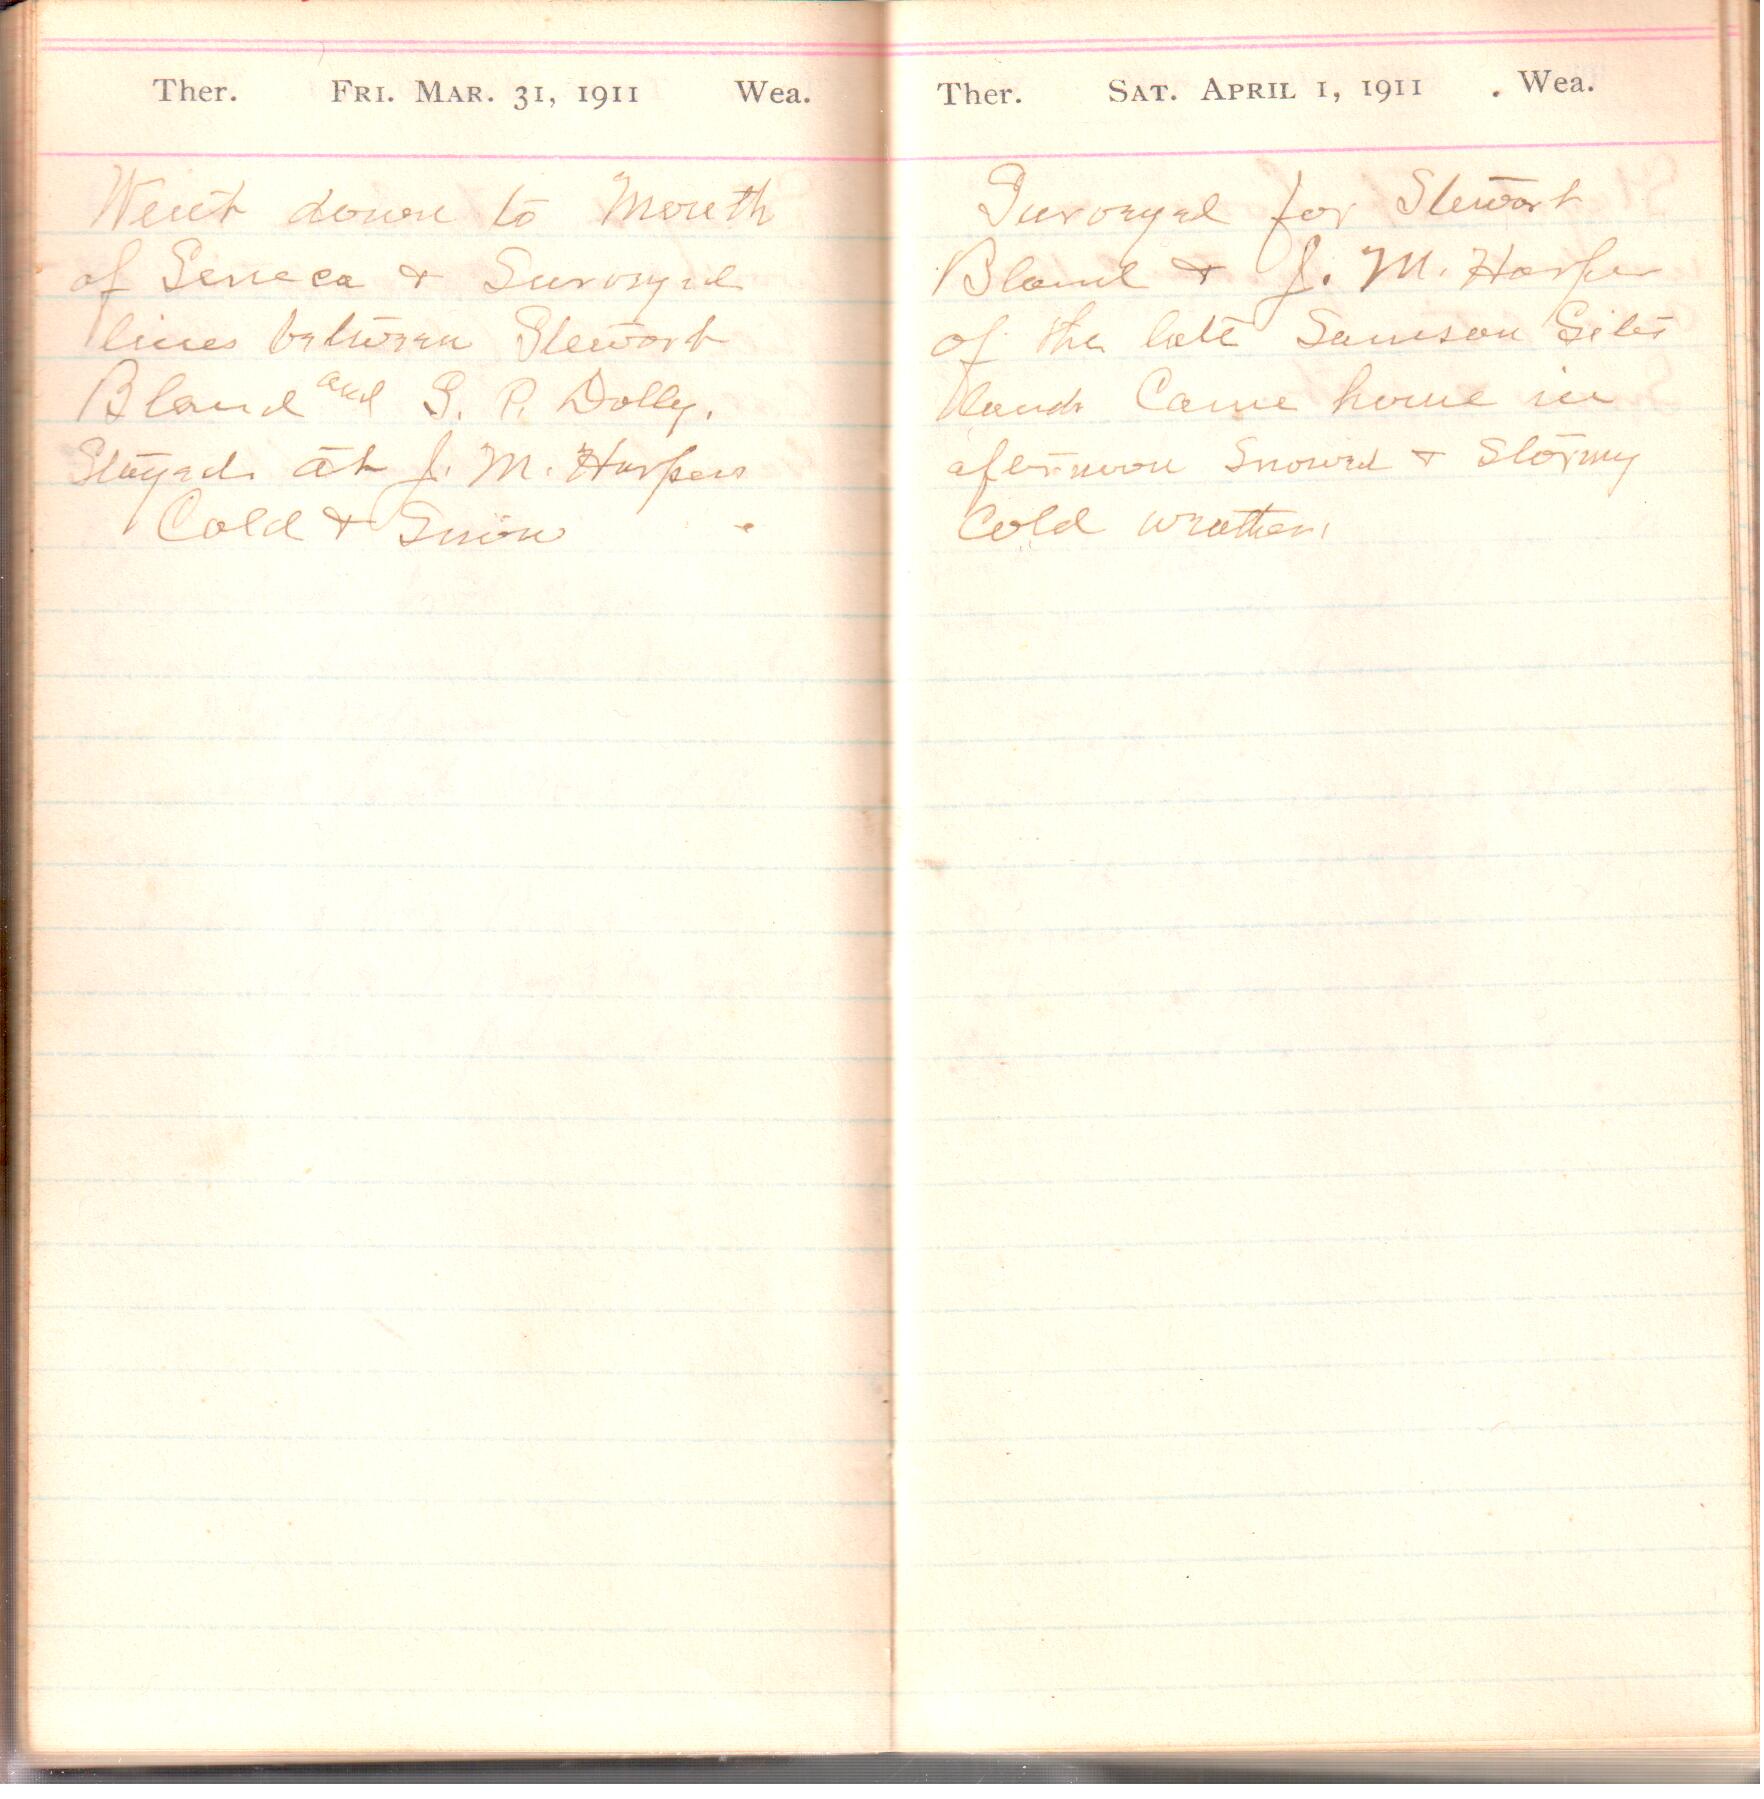 Ther. Fri. Mar. 31, 1911 Wea.
Went down to Mouth
of Seneca & Surveyed
lines between Stewart
Bland and S. P. Dolly.
Stayed at J. M. Harpers
Cold & Snow
Ther. Sat. April 1, 1911 Wea.
Surveyed for Stewart
Bland & J. M. Harper
of the late Samson Sites
lands Came home in
afternoon Snowed & Stormy
Cold weather.